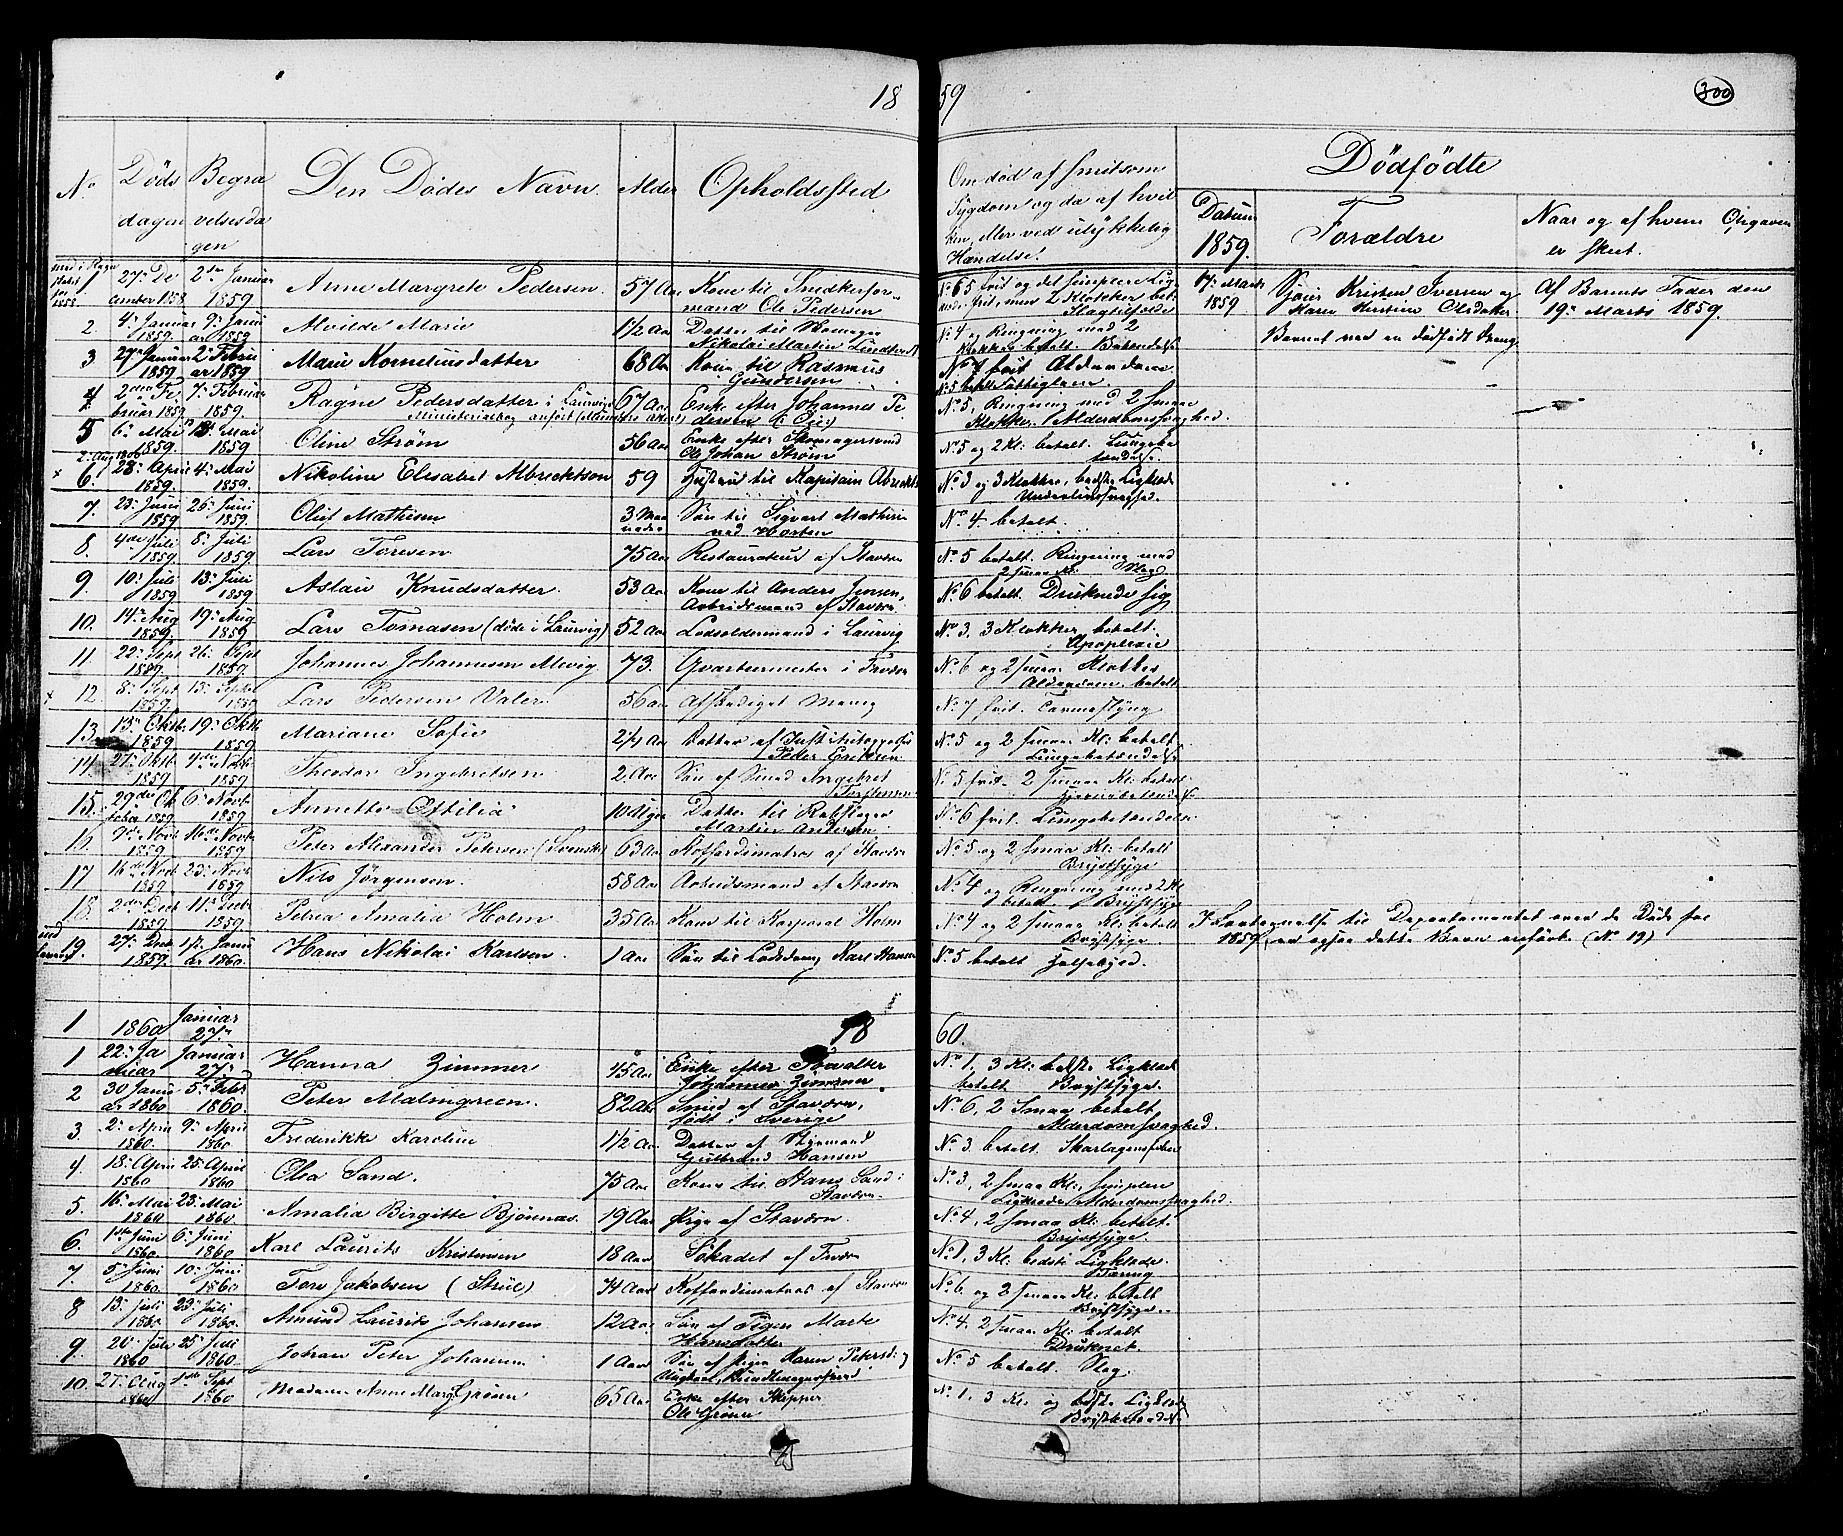 18
59
300
No
Døds
dagen
Begra
velsesda
gen
Den Dødes Navn.
Alder
Opholdssted
Om død af smitsom
Sygdom og da af hvil
ken, eller ved ulykkelig
Hændelse!
Dødfødte
Datum
1859.
Forældre
Naar og af hvem Opgaven
er skeet.
1 27. De 2den Januar Anne Margrete Pedersen. 57 Aar Kone til Snedkerfor-
cember 1858 1859 mand Ole Pedersen
17. Marts
1859
Kristen Iversen og
Karen Kirstine Olsdatter.
Barnet var en dødfødt Dreng.
Af Barnets Fader den
19. Marts 1859.
2. 4. Januar 9. Janu Alvilde Marie 1 1/2 Aar Datter til
1859. ar 1859 Nikolai Martin
No 4 og Ringning med 2
Klokker betalt.
3 Januar 2. Febru Maren Korneliusdatter 68 Aar Kone til Rasmus
1859 ar 1859 Gundersen
No 7 frit Alderdom
4 2den Fe 7. Februar Ragne Pedersdatter i Laurvigs 67 Aar Enke efter Johannes Pe
bruar 1859 1859. Ministerialbog anført dersen
No 5, Ringning med 2 Smaa
Klokker. Alderdomssvaghed.
5 6. Mai 13. Mai Oline Strøm 56 Aar Enke efter Skomagersvend
1859. 1859 Johan Strøm
No 5 og 2 Kl: betalt. Lungebe
tændelse.
6. 28. April 4. Mai Nikoline Elisabet Albrecktson 59 Hustru til Kapitain
1859. 1859.
No 3 og 3 Klokker, bedste Ligklæde
Underlivssvaghed.
7. 23. Juni 26. Juni Oluf Mathisen 3 Maa Søn til Sigvart Mathisen
1859 1859. neder ved Horten
No 4 betalt.
8. 4de Juli 8. Juli Lars Toresen 75 Aar Restaurateur af Staværn
1859 1859.
No 5 betalt Ringning med
2 smaa Kl: Slag
9 10. Juli 13. Juli Aslau Knudsdatter 53 Aar Kone til Anders Jensen,
1859 1859 Arbeidsmand af Staværn
No 6 betalt. Druknede sig
10. 14. Aug 19. Aug Lars Tomasen (døde i Laurvig) 52 Aar Lodsoldermand i Laurvig
1859. 1859
No 3. 3 Klokker betalt.
Apoplexie
11 22. Sept 26. Sept Johannes Johannesen 73. Qvartermester i
1859 1859.
No 6 og 2 smaa Klokker
Alderdom. betalt
12. 8. Sept 13. Septbr Lars Pedersen Valer 56 Aar Afskediget
1859. 1859
No 7 frit.
13 15. Oktbr. 19. Oktbr Mariane Sofie 2 1/2 Aar Datter af
1859 1859. Peder Eriksen
No 5 og 2 smaa Kl: betalt.
Lungebetændelse
14. 27. Oktbr Theodor Ingebretsen 2. Aar Søn af Smed Ingebret
1859 1859 Torstensen
No 5 frit. 2 smaa Kl: betalt
15. 29de Ok 6. Novbr Annette Ottilia 10 Uger Datter til Rebslager
tober 1859. 1859 Martin Andersen
No 6 frit. Lungebetændelse
16. 9de Novb 16de Novb Peter Alexander Petersen (Svensk) 63 Aar Koffardimatros af Staværn
1859 1859
No 5 og 2 smaa Kl: betalt
Brystsyge
17 16de Novb 23. Novb Nils Jørgensen. 58 Aar Arbeidsmand af Staværn
1859 1859
No 4 og Ringning med 2 Kl
betalt Brystsyge
18. 2den Decb 11. Decb Petrea Amalia Holm 35 Aar Kone til Korporal Holm
1859 1859.
No 4 og 2 smaa Kl: betalt
Brystsyge
19. 27. Decb 1ste Janu Hans Nikolai Karlsen. 1 Aar Søn til Lodsdreng Karl Hansen
1859. ar 1860.
No 5 betalt
I Fortegnelse til Departementet over de Døde for
1859, er ogsaa dette Barn anført (No 19)
1 1860 Januar
27.
18
60
1 22. Ja Januar Hanna Zimmer 45 Aar Enke efter
nuar 27. Johannes Zimmer
No 1, 3 Kl: bedste Ligklæde
betalt Brystsyge.
2 30 Janu 5. Febr Peter Malmgreen. 82 Aar Smed af Staværn,
ar 1860 1860. født i Sverige
No 6, 2 Smaa betalt
Alderdomssvaghed.
3. 2. April 9. April Fredrikke Karoline 1 1/2 Aar Datter af Styrmand
1860. 1860 Gulbrand Hansen
No 3. betalt. Skarlagensfeber
4. 18. April 25. April Olea Sand. 75 Aar Kone til Hans Sand i
1860 1860 Staværn.
No 3, 2 smaa Kl:, simplere
Ligklæde Alderdomssvaghed.
5. 16. Mai 23. Mai Amalia Birgitte Bjønnæs. 19 Aar Pige af Staværn.
1860 1860
No 4, 2 smaa Kl: betalt.
Brystsyge.
6. 1ste Juni 6. Juni Karl Laurits Kristensen 18 Aar Søkadet af
1860. 1860
No 1. 3 Kl. bedste Ligklæde
Tæring
7. 5. Juni 10. Juni Tore Jakobsen 74 Aar Koffardimatros af Staværn
1860. 1860
No 6. og 2 smaa Kl: betalt
Brystsyge.
8 13. Juli 23. Juli Amund Laurits Johansen 12 Aar Søn af Pigen Marte
1860 1860. Hansdatter
No 4, 2 smaa Kl: betalt
Druknet.
9. 20. Juli 25. Juli Johan Peter Johannsen 1 Aar Søn af Pigen Karen Petersd: og
1860 1860.
No 5 betalt. Slag
10. 27. Aug 1ste Sept Madame Anne Margr Grønn 65 Aar Enke efter Skipper
1860 1860 Ole Grønn
No 1, 3 Kl. og bedste Ligklæde